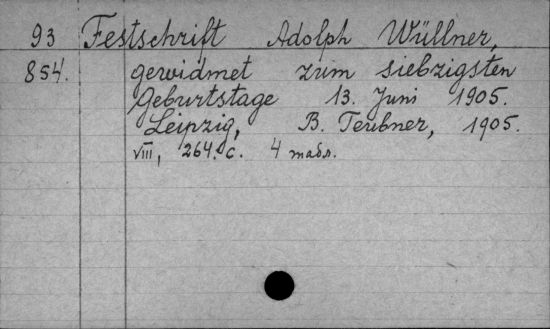 93 Festschrift Adolph Wüllner,
854. gewidmet zum siebzigsten
Geburtstage 13. Juni 1905.
Leipzig, B. Teubner, 1905.
VIII, 264. c. 4